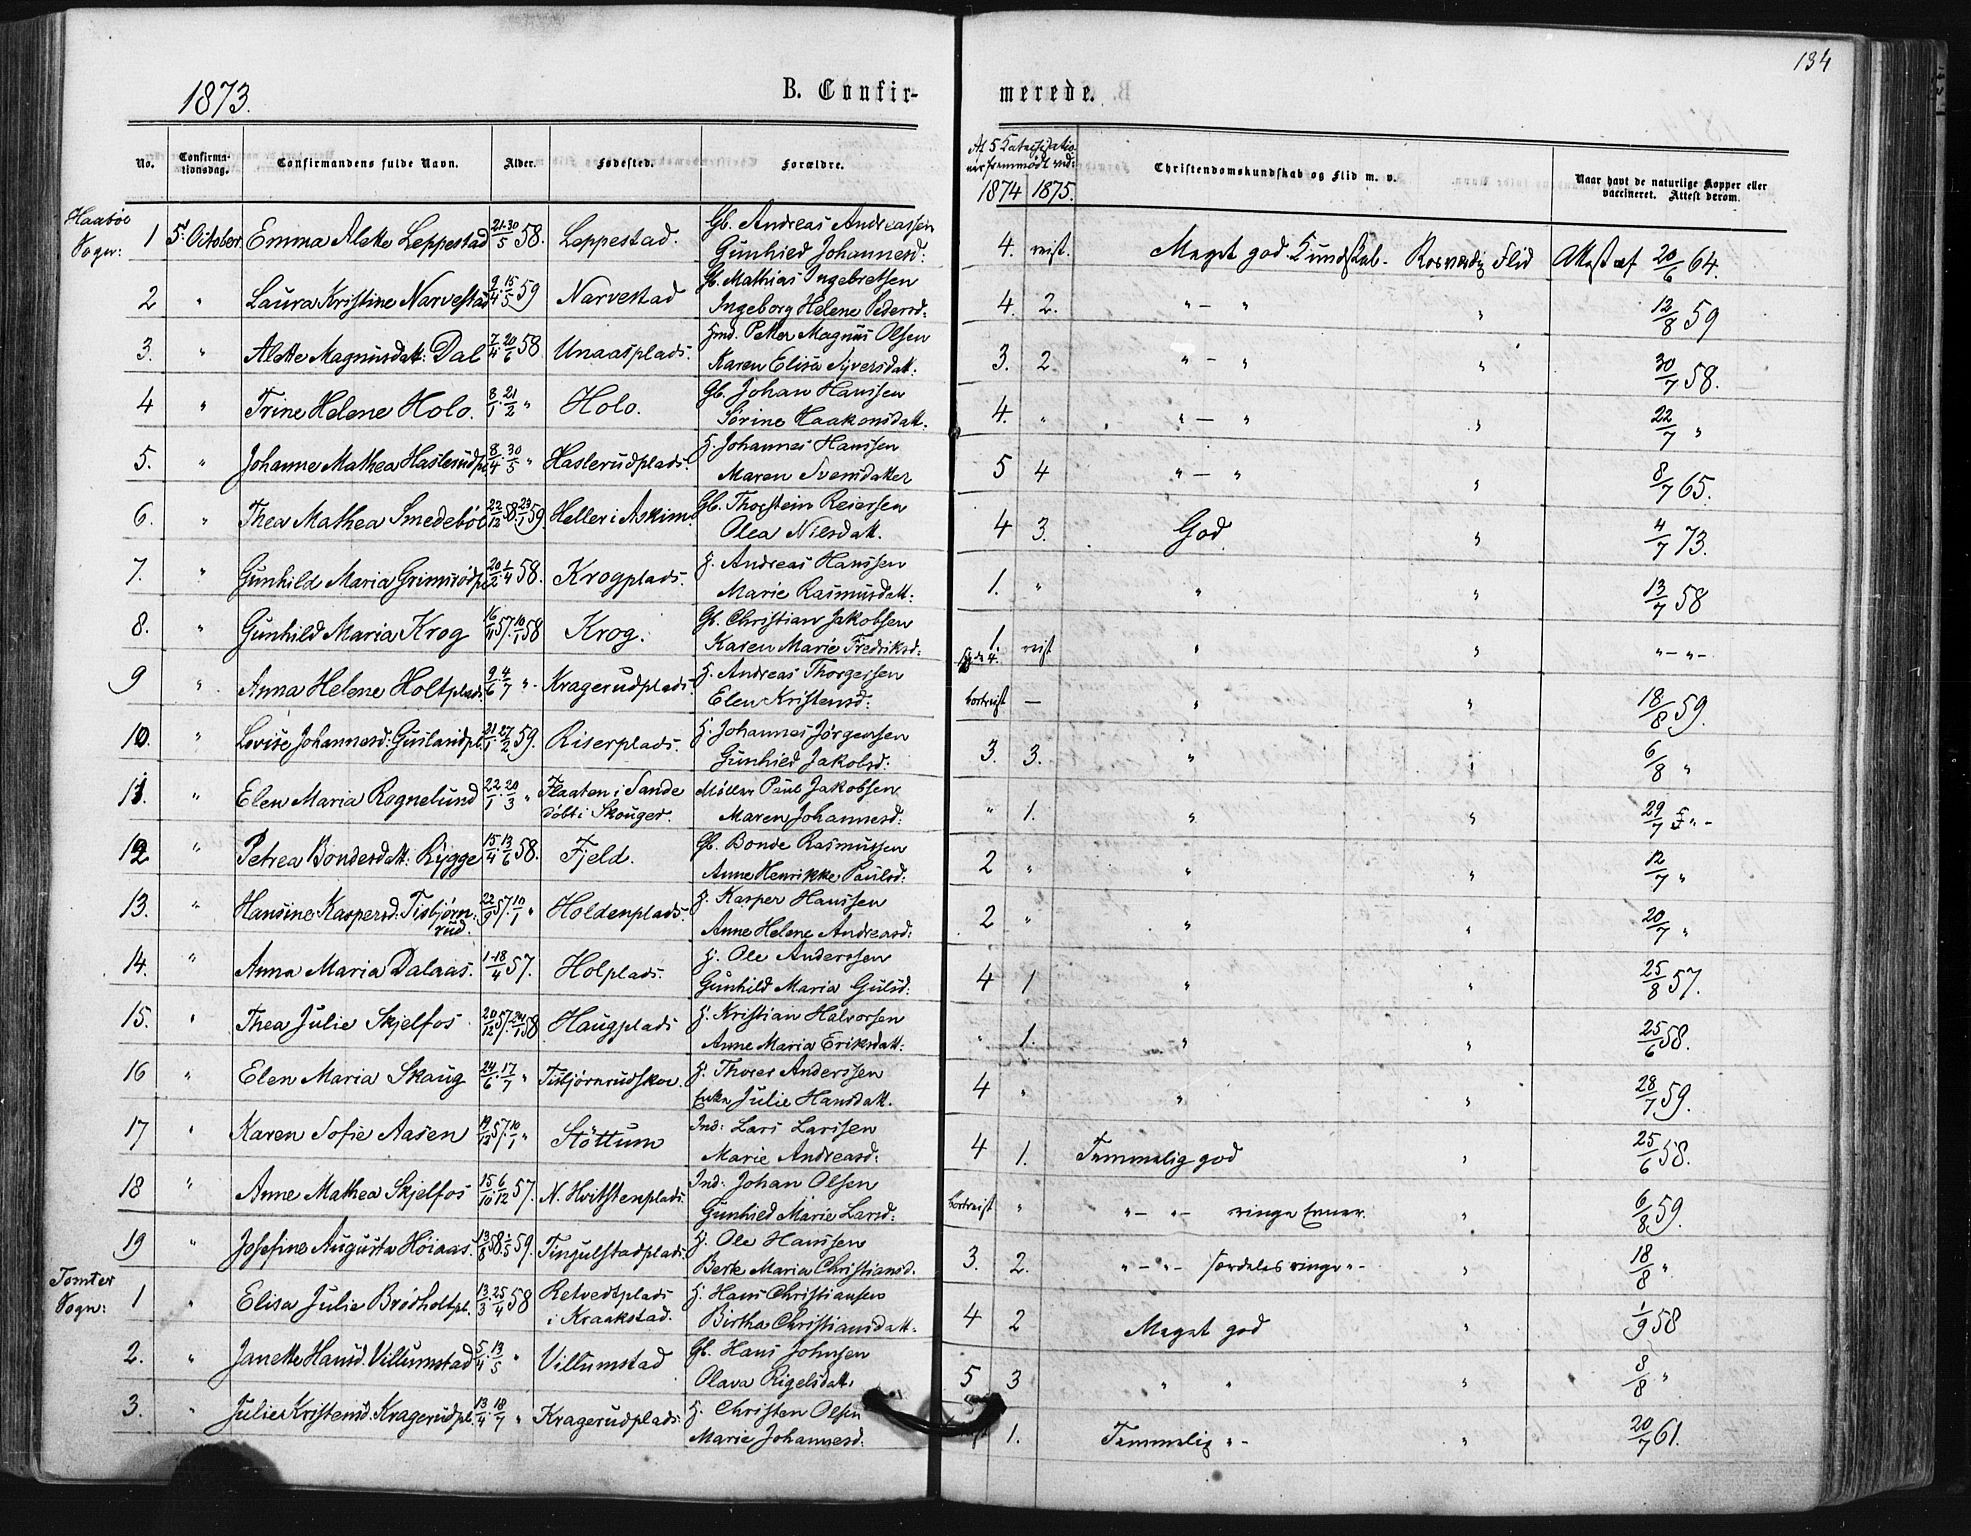 134
1873.
B. Confirmerede.
No. Confirmationsdag. Confirmandens fulde Navn. Alder. Fødested. Forældre. Af 5 Catechisationer fremmødt ved: 1874 1875. Christendomskundskab og Flid m. v. Naar havt de naturlige Kopper eller vaccineret. Attest derom.
Haabøl Sogn:
1 5. October Emma Alette Leppestad 21/ 30/5 58. Leppestad. Gb. Andreas Andreassen 4. reist. Meget god Kundskab. Rosværdig Flid Attest af 20/6 64.
Gunhild Johannesd:
2 " Laura Kristine Narvestad 9/4 15/5 59 Narvestad Gb. Mathias Ingebretsen 4. 2. " — " " 12/8 59
Ingeborg Helene Pedersd:
3. " Alette Magnusdatt: Dal 7/4 20/6 58. Unaasplads. Hmd. Petter Magnus Olsen 3. 2. " — " " 30/7 58.
Karen Elise Syversdatt.
4 " Trine Helene Holo. 8/1 21/2 " Holo. Gb. Johan Hanssen 4. " " — " " 22/7 "
Sørine Haakonsdatt.
5. " Johanne Mathea Haslerudpl. 8/4 30/5 " Haslerudplads. H. Johannes Hanssen 5 4 " — " " 8/7 65.
Maren Svensdatter
6. " Thea Mathea Smedebøl 22/12 58. 23/1 59. Heller i Askim Gb. Thorstein Reiersen 4 3. God. " 4/7 73.
Olea Nilsdatt.
7. " Gunhild Maria Grimsrødpl. 20/2 1/4 58. Krogplads. H. Andreas Hanssen 1. " " " 13/7 58
Marie Rasmusdatt.
8. " Gunhild Maria Krog 16/11 57. 10/1 58 Krog. Gb. Christian Jakobsen 1. reist " " " - " -
Karen Marie Fredriksd:
9 " Anna Helene Holtplads. 9/6 4/7 " Kragerudplads. H. Andreas Thorgersen bortreist — " " 18/8 59.
Elen Kristensd:
10. " Lovise Johannesd: Guslundpl. 21/1 27/2 59. Riserplads. H. Johannes Jørgensen 3. 3. " " 6/8 "
Gunhild Jakobsd:
11. " Elen Maria Rognelund 22/1 20/3 " Flaaten i Sande Møller Paul Jakobsen " 1. " " 29/7 " -
døbt i Skouger. Maren Johannesd:
12 " Petrea Bondesdatt. Rygge 15/4 13/6 58. Fjeld. Gb. Bonde Rasmussen 2 " " " 12/7 "
Anne Henrikke Paulsd:
13. " Hansine Kaspersd: Tisbjørnrud. 22/9 57. 10/1 " Holdenplads. H. Kasper Hanssen 2 " " " 20/7 "
Anne Helene Andreasd:
14. " Anna Maria Dalaas. 1 18/4 57. Holplads. H. Ole Anderssen 4 1 " " 25/8 57.
Gunhild Maria Gulsd:
15. " Thea Julie Skjelfos 20/12 57. 24/1 58 Haugplads H. Kristian Halvorsen " 1. " " 25/6 58.
Anne Maria Eriksdatt:
16 " Elen Maria Skaug 24/6 17/7 " Tisbjørnrudskov. H. Thorer Anderssen 4 " " " 28/7 59.
Enke Julie Hansdatt.
17 " Karen Sofie Aasen 14/12 57. 10/1 " Støttum Ind: Lars Larssen 4 1. Temmelig god " 25/6 58.
Marie Andreasd:
18 " Anne Mathea Skjelfos 15/10 6/12 57. N. Hvitstenplads. Ind: Johan Olsen bortreist " " - " - ringe Evner. " 6/8 59.
Gunhild Marie Larsd:
19 " Josefine Augusta Høiaas. 13/8 58. 1/5 59. Tingulstadplads. H. Ole Hanssen 3. 2. " - " - særdeles ringe " - " 18/8 "
Berte Maria Christiansd.
Tomter Sogn:
1 " Elisa Julie Brødholtpl. 13/3 25/4 58 Retvedtplads H. Hans Christiansen 4 2 Meget god " 1/9 58
i Kraakstad. Birtha Christiansdatt.
2. " Janette Hansd. Villumstad 5/4 13/5 " Villumstad Gb. Hans Johnsen 5 3 " " " 8/8 "
Olava Rigelsdatt.
3. " Julie Kristensd. Kragerudpl. 13/4 18/7 " Kragerudplads. H. Christen Olsen 1. Temmelig " - " 20/7 61.
Marie Johannesd.